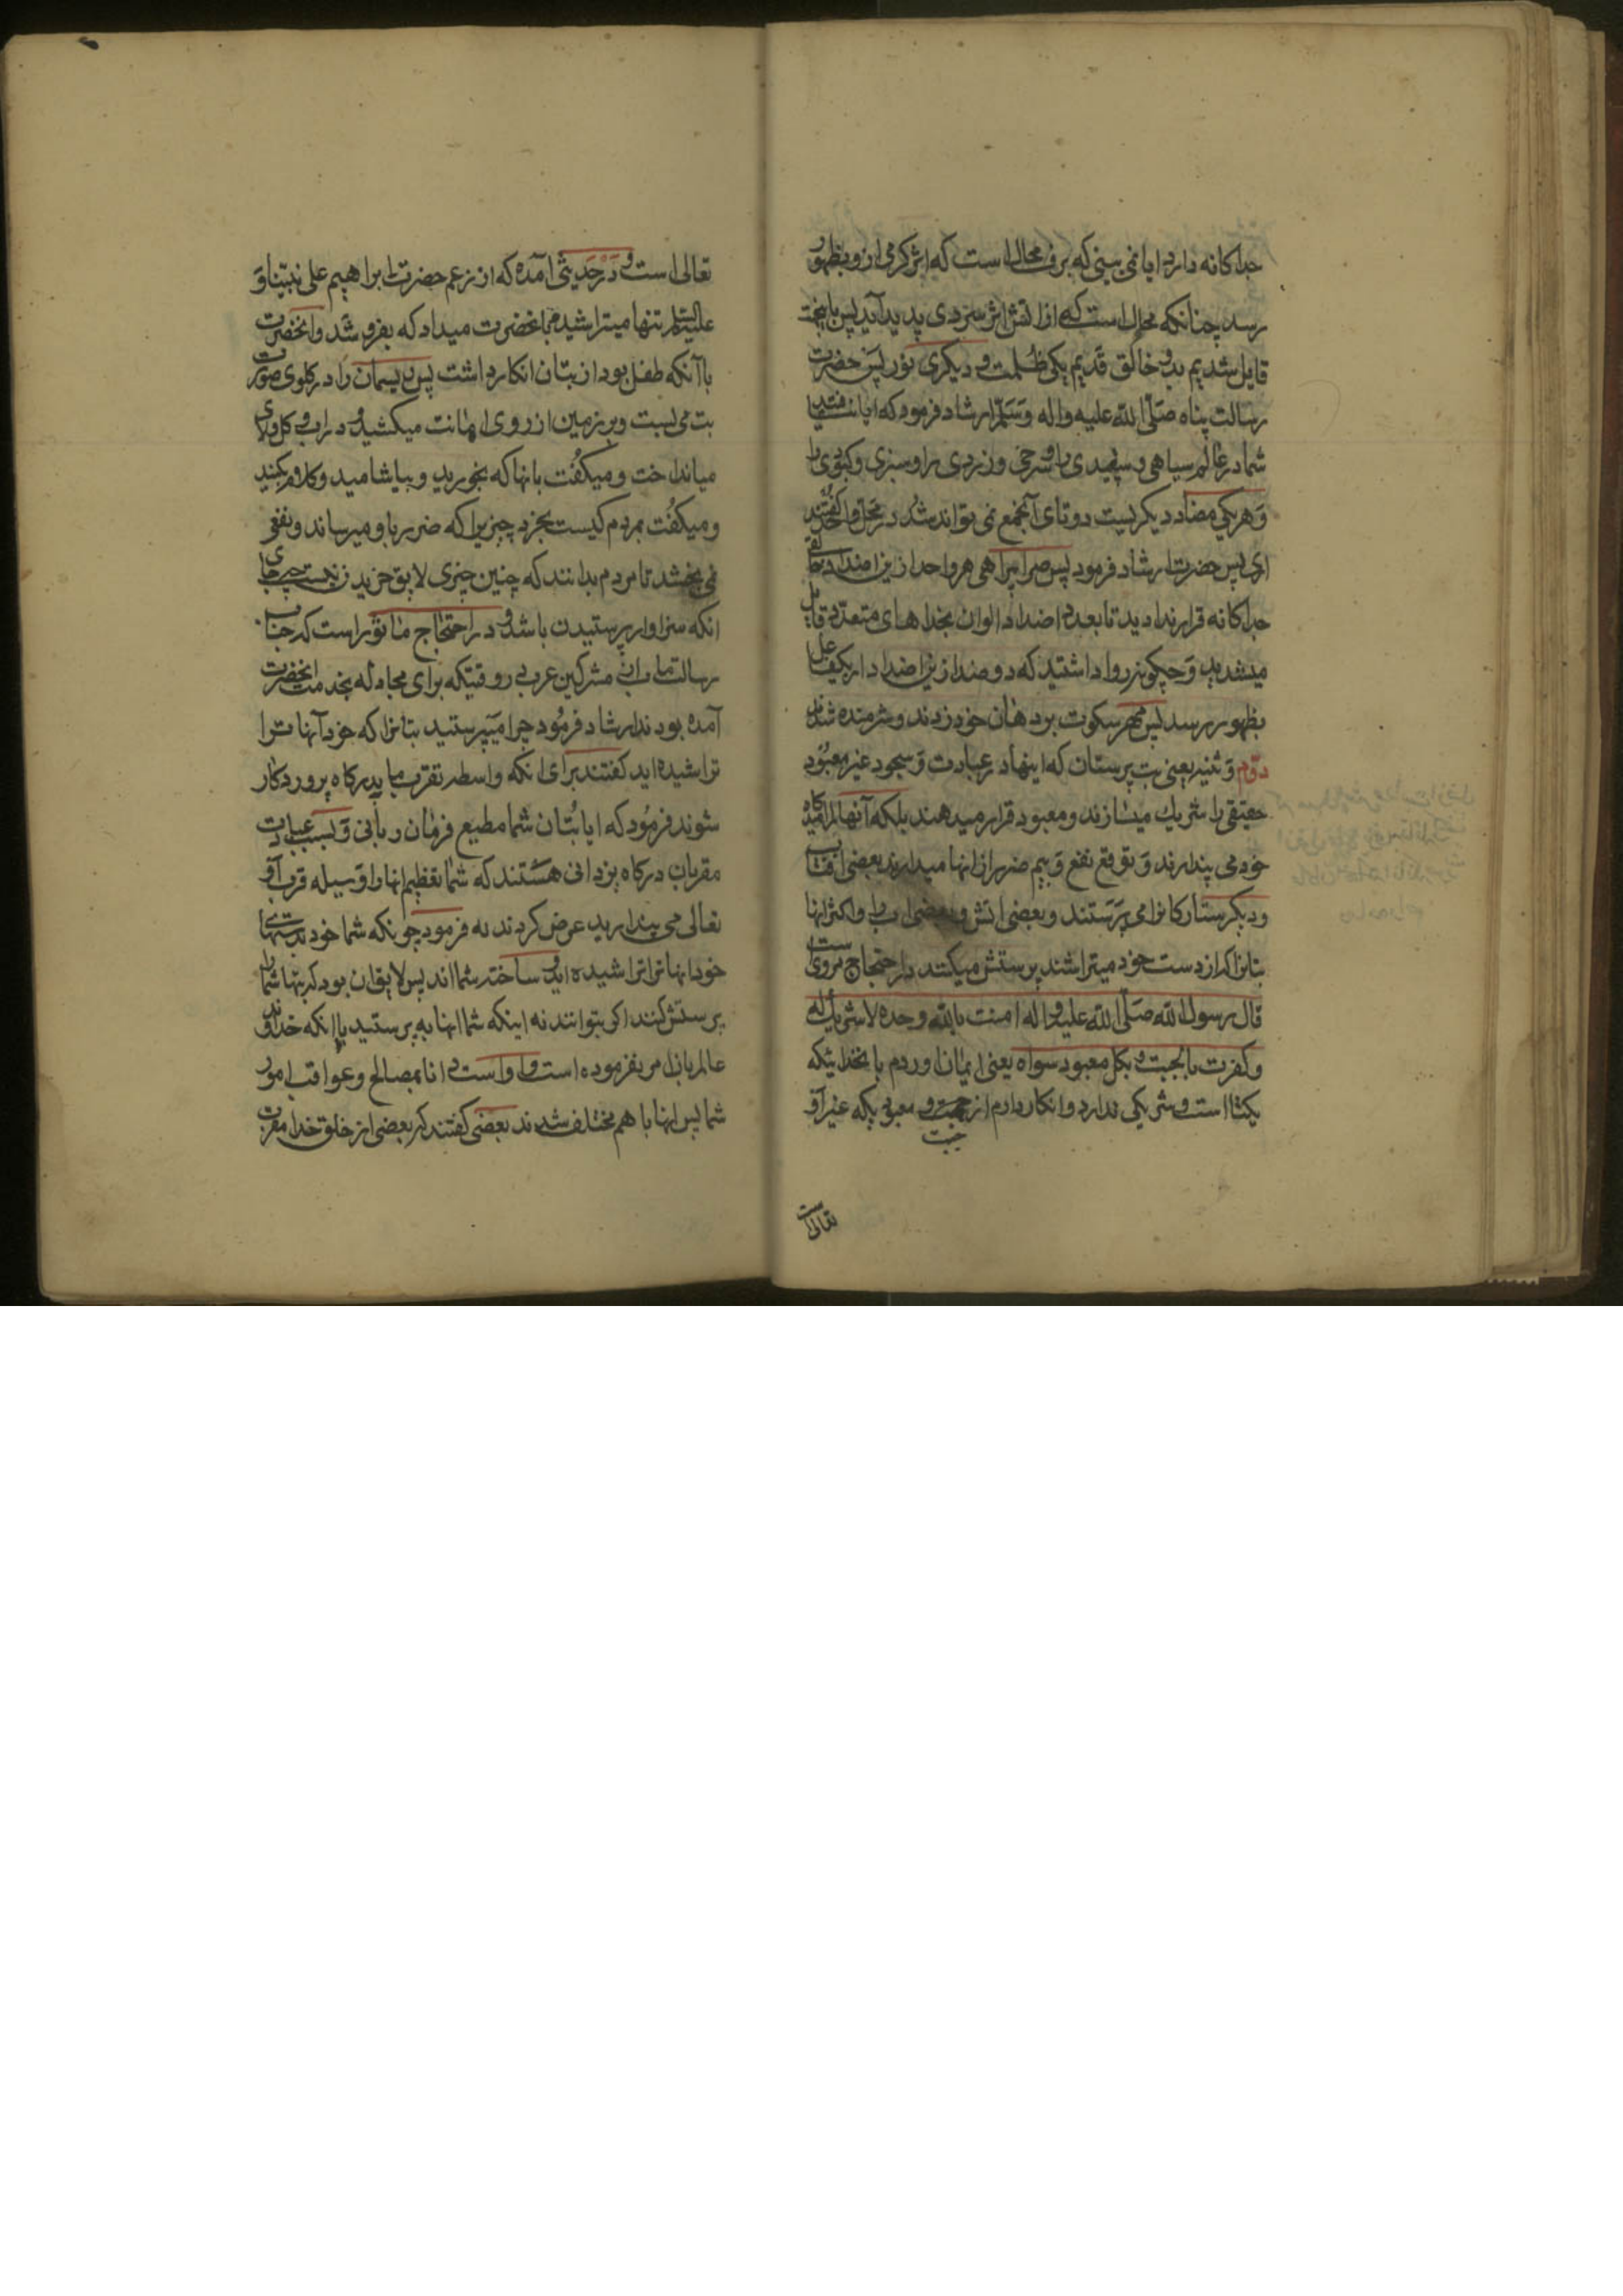 جداکانه دارد ایا نمی بینی که برف محال است که اثر کرمی ازو بظهور
رسد چنانکه محال است که از اتش اثر سردی پدید آید پس باینجهت
قایل شدیم بدو خالق قدیم یکی ظلمت و دیکری نور پس حضرت
رسالت پناه صلی الله علیه واله وسلم ارشاد فرمود که ایا نیافتید
شما در عالم سیاهی و سپیدی را و سرخی و زردی را و سبزی و کبودی را
و هر یکی مضاد دیکریست دو تای آنجمع نمی تواند شد در محل واحد کفتند
اری پس حضرت ارشاد فرمود پس چرا برای هر واحد ازین اضداد خالقی
جداکانه قرار ندادید تا بعدد اضداد الوان بخداهای متعدد قایل
میشدید و چکونه روا داشتید که دو ضد ازین اضداد از یک فاعل
بظهور رسد پس مهر سکوت بر دهان خود زدند و شرمنده شدند
دوم وثنیه یعنی بت پرستان که اینها در عبادت و سجود غیر معبود
حقیقی را شریک میسازند و معبود قرار میدهند بلکه آنها را
خود می پندارند و توقع نفع و بیم ضرر از انها میدارند بعضی افتاب
و دیکر ستارکانرا می پرستند و بعضی اتش و بعضی اب را و اکثر انها
بتانرا که از دست خود میتراشند پرستش میکنند در احتجاج مرویست
قال رسول الله صلی الله علیه واله امنت بالله وحده لا شریک له
وکفرت بالجبت و بکل معبود سواه یعنی ایمان اوردم بانخدائیکه
یکتا است و شریکی ندارد و انکار دارم از جبت و معبودیکه غیر او
جبت
تعالی است
تعالی است و در حدیثی آمده که از زعم حضرت ابراهیم علی نبینا و
علیه السلم تنها میتراشید و بانحضرت میداد که بفروشد وانحضرت
با آنکه طفل بود از بتان انکار داشت پس ریسمان را در کلوی صورت
بت می بست و بر زمین از روی اهانت میکشید و در اب و کل و لای
میانداخت و میکفت بانها که بخورید و بیاشامید و کلام کنید
و میکفت بمردم کیست بخرد چیزیرا که ضرر باو میرساند و نفعی
نمی بخشد تا مردم بدانند که چنین چیزی لایق خریدن نیست چه جای
انکه سزاوار پرستیدن باشد و در احتجاج ماثور است که جناب
رسالت مابی مشرکین عرب را وقتیکه برای مجادله بخدمت انحضرت
آمده بودند ارشاد فرمود چرا میپرستید بتانرا که خود آنها را
تراشیده اید کفتند برای انکه واسطه تقرب ما بدرکاه پروردکار
شوند فرمود که ایا بتان شما مطیع فرمان ربانی و بسبب عبادت
مقربان درکاه یزدانی هستند که شما تعظیم انها را وسیله قرب او
تعالی می پندارید عرض کردند نه فرمود چونکه شما خود بدستهای
خود انهانرا تراشیده اید و ساخته شما اند پس لایق ان بود که بتها شما را
پرستش کنند اکر بتوانند نه اینکه شما انها به پرستید با انکه خداوند
عالم بان امر نفرموده است و او است دانا بمصالح و عواقب امور
شما پس انها با هم مختلف شدند بعضی کفتند که بعضی از خلق خدا مقرب